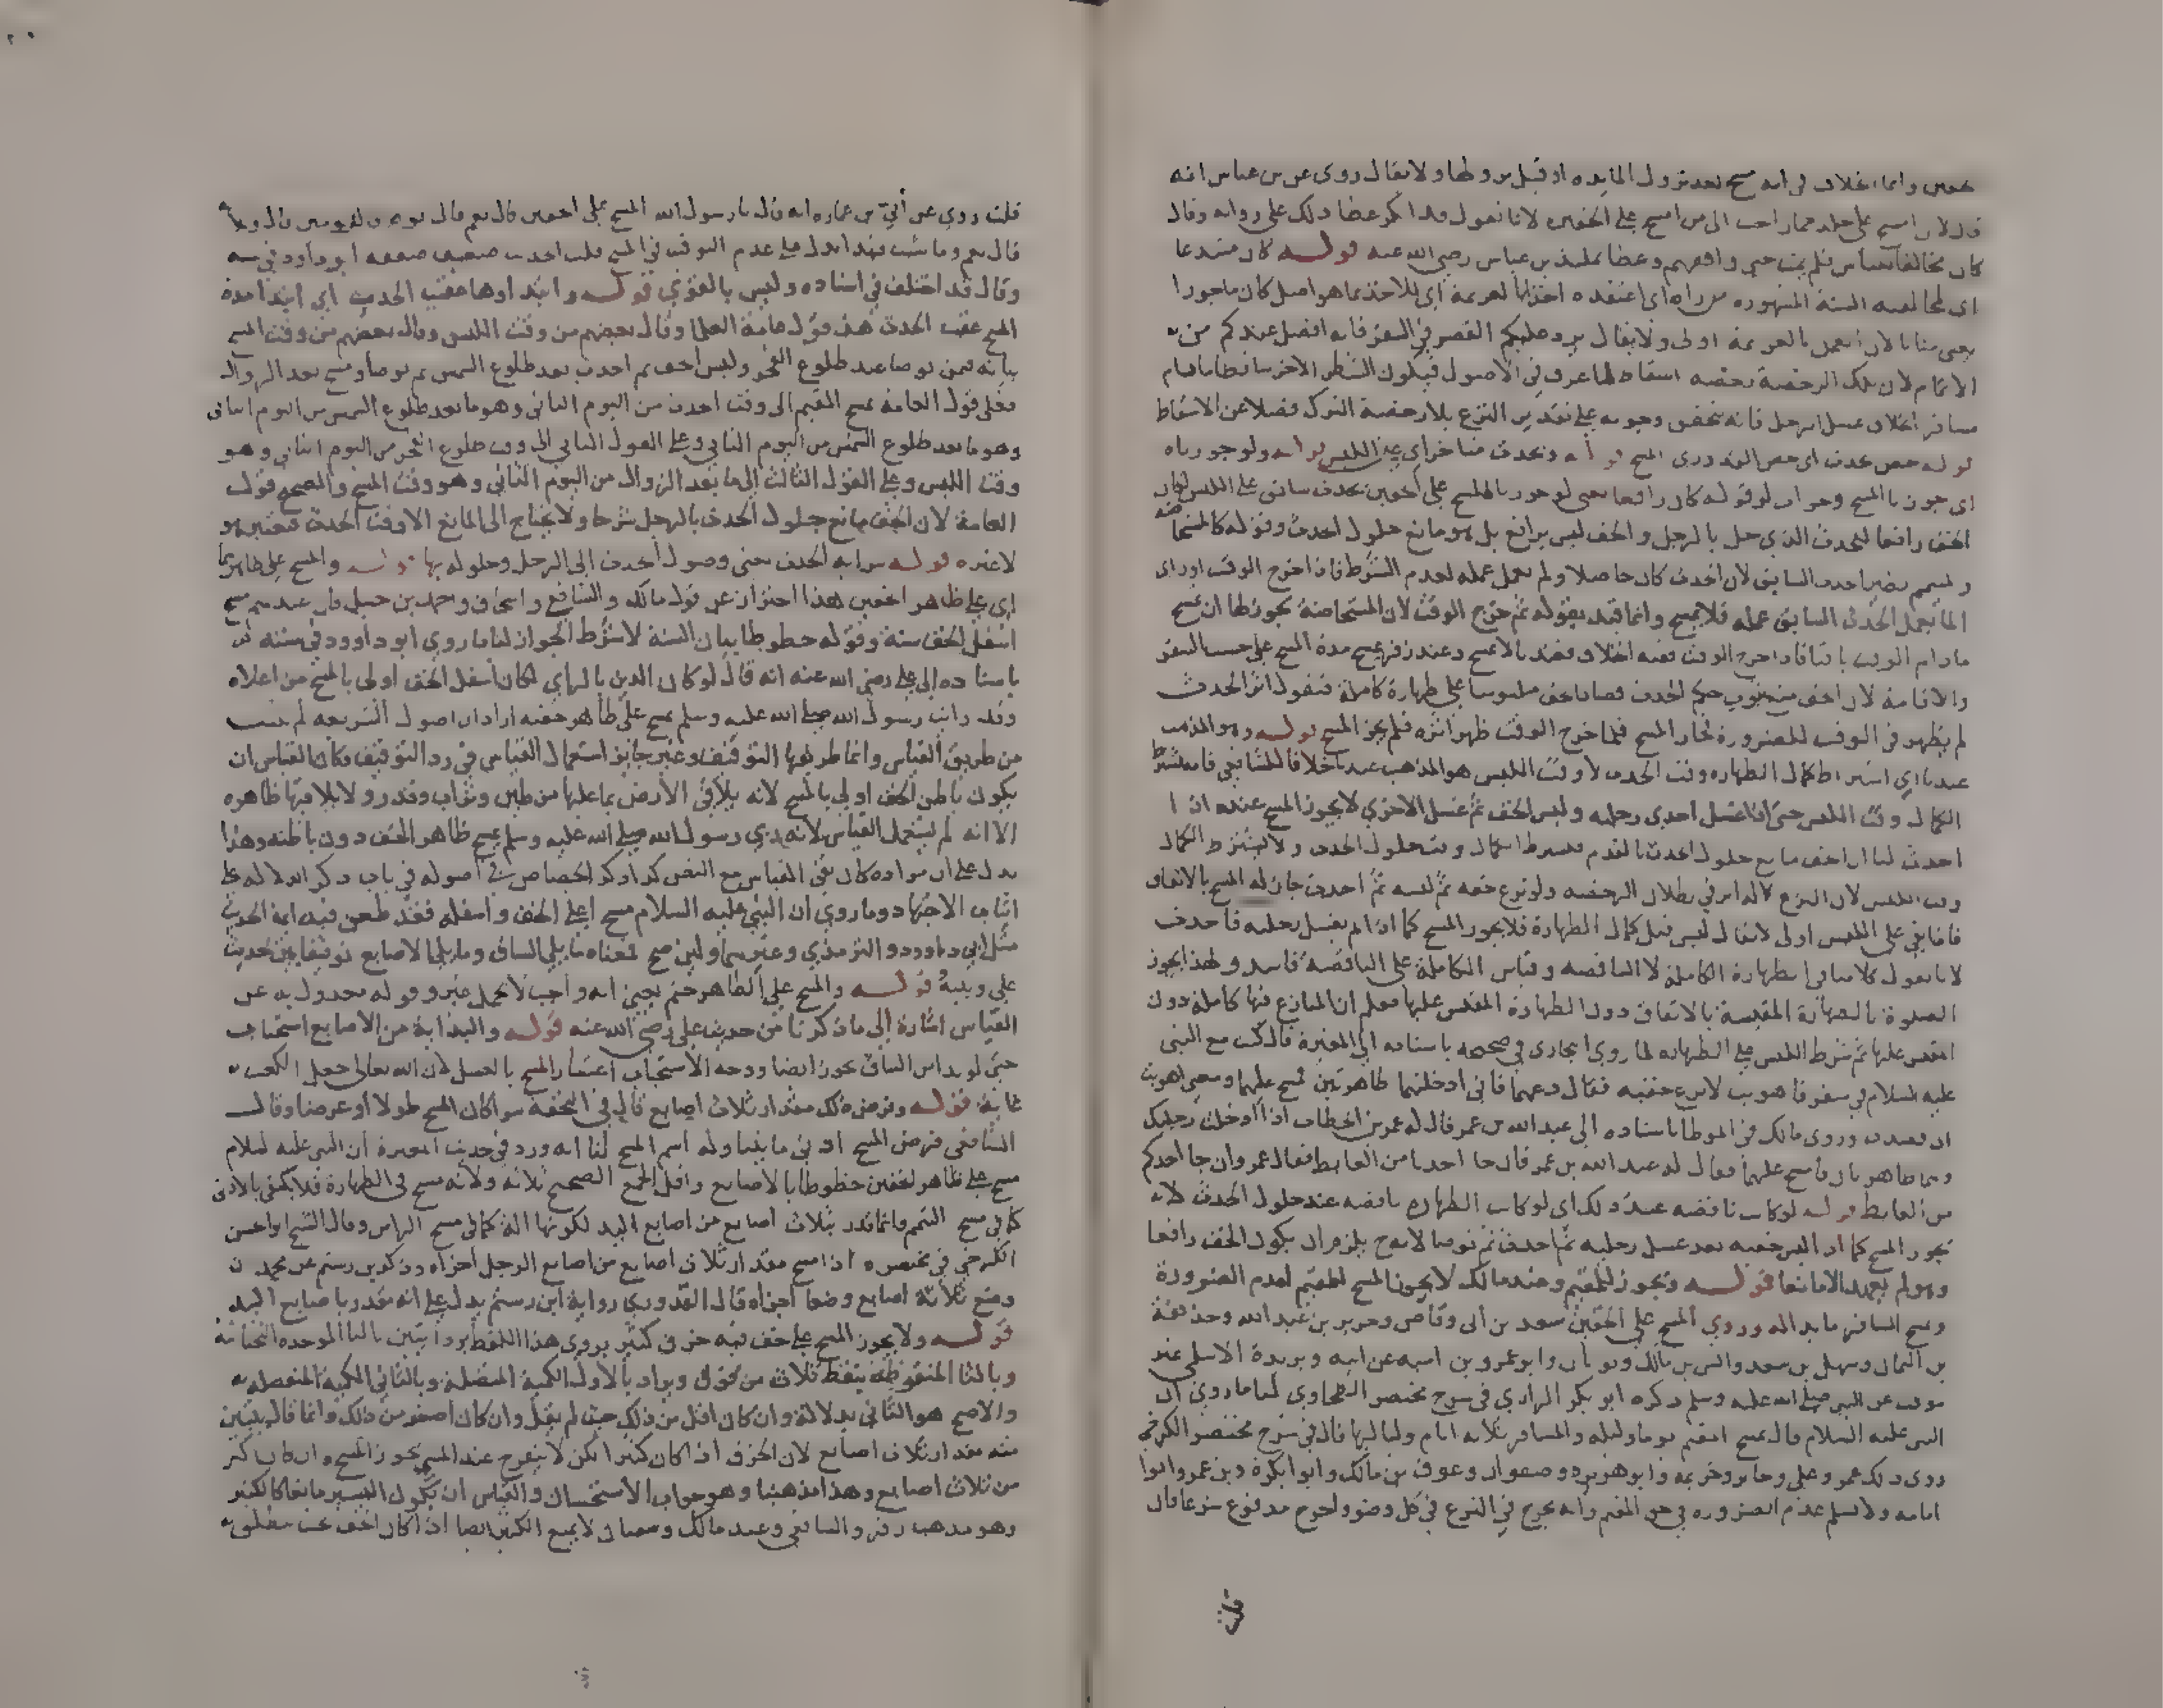 خفين وانما اختلاف في انه مسح بعد نزول المايده او قبل نزولها ولا يقال روي عن بن عباس انه
قال لان امسح على جلد حمار احب الي من امسح على الخفين لانا نقول قد انكر عطا ذلك على روايه وقال
كان مخالفا لعباس فلم يمت حتى وافقهم وعطا تلميذ بن عباس رضي الله عنه قوله كان مبتدعا
اي لمخالفته السنة المشهوره من راه اي اعتقده اخذا بالعزيمة اي للاخذ بما هو اصل كان ماجورا
يعني مثابا لان العمل بالعزيمة اولى ولا يقال يرد عليكم القصر في السفر فانه افضل عندكم من
الاتمام لان تلك الرخصة رخصه اسقاط لما عرف في الاصول فيكون الشطر الاخر ساقطا مادام
مسافرا بخلاف غسل الرجل فانه يتحقق وجوبه على تقدير النزع بلا رخصة الترك فضلا عن الاسقاط
قوله خص بحدث اي خص القدوري المسح قوله وبحدث متاخر اي عن اللبس قوله ولو جوزناه
اي جوزنا المسح وجواب لو قوله كان رافعا يعني لو جوزنا المسح على الخفين بحدث سابق على اللبس لكان
الخف رافعا للحدث الذي حل بالرجل والخف ليس برافع بل هو مانع حلول الحدث وقوله كالمستحاضة
والمتيمم
الما يعمل الحدث السابق عمله فلا يمسح وانما قيد بقوله ثم خرج الوقت لان المستحاضة يجوز لها ان تمسح
مادام الوقت باقيا فاذا خرج الوقت ففيه اختلاف فعندنا لا تمسح وعند زفر تمسح مدة المسح على حسب السفر
والاقامة لان الخف حكم الحدث فصار الخف ملبوسا على طهارة كاملة فنقول اثر الحدث
لم يظهر في الوقت للضرورة فجاز المسح فلما خرج الوقت ظهر اثره فلم يجز المسح قوله وهو المذهب
عندنا اي اشتراط كمال الطهاره وقت الحدث لا وقت اللبس هو المذهب عندنا خلافا للشافعي فانه يشترط
الكمال وقت اللبس حتى اذا غسل احدى رجليه ولبس الخف ثم غسل الاخرى لا يجوز المسح عنده اذا
احدث لنا ان الخف مانع حلول الحدث بالقدم فيشترط الكمال وقت حلول الحدث ولا يشترط الكمال
وقت اللبس لان النزع له اثر في بطلان الرخصه ولو نزع خفه ثم لبسه ثم احدث جاز له المسح بالاتفاق
فالباقي على اللبس اولى لا يقال لبس قبل كمال الطهارة فلا يجوز المسح كما اذا لم يغسل رجليه فاحدث
لانا نقول كلامنا في الطهارة الكاملة لا الناقصه وقياس الكاملة على الناقصة فاسد ولهذا يجوز
الصلوة بالطهارة المقيسة بالاتفاق دون الطهارة المقيس عليها فعلم ان المنازع فيها كاملة دون
المقيس عليها ثم شرط اللبس على الطهاره لما روى البخاري في صحيحه باسناده الى المغيرة قال كنت مع النبي
عليه السلام في سفر فاهويت لانزع خفيه فقال دعهما فاني ادخلتهما طاهرتين فمسح عليهما ومعنى اهويت
اي قصدت وروى مالك في الموطا باسناده الى عبد الله بن عمر قال له عمر بن الخطاب اذا ادخلت رجليك
وهما طاهرتان فامسح عليهما فقال له عبد الله بن عمر فان جا احدنا من الغايط فقال عمر وان جا احدكم
من الغايط قوله لو كانت ناقصه عند ذلك اي لو كانت الطهاره ناقصه عند حلول الحدث لانه
يجوز المسح كما اذا لبس خفيه بعد غسل رجليه ثم احدث ثم توضا يلزم ان يكون الخف رافعا
وهو لم يعهد الا مانعا قوله ويجوز للمقيم وعند مالك لا يجوز المسح للمقيم لعدم الضرورة
ويمسح المسافر ما بدا له وروي المسح على الخفين سعد بن ابي وقاص وجرير بن عبد الله وحذيفة
بن اليمان وسهل بن سعد وانس بن مالك وثوبان وابو عمرو بن امية عن ابيه وبريدة الاسلمي
عن النبي صلى الله عليه وسلم ذكره ابو بكر الرازي في شرح مختصر الطحاوي لنا ما روي ان
النبي عليه السلام قال يمسح المقيم يوما وليله والمسافر ثلاثه ايام ولياليها قال في شرح مختصر الكرخي
روى ذلك عمر وعلي وجابر وخزيمه وابو هريره وصفوان وعوف بن مالك وابو بكرة وبن عمر وابو
امامه ولا نسلم عدم الضروره في حق المقيم وانه يحرج في النزع في كل وضو والحرج مدفوع شرعا فان
قلت
قلت روي عن أبي بن عماره انه قال يا رسول الله المسح على الخفين قال نعم قال يوم قال ويومين قال وثلاثة
قال نعم وما شئت فهذا يدل على عدم التوقيت في المسح قلت الحديث ضعيف ضعفه ابو داود في سننه
وقال قد اختلف في اسناده وليس بالقوي قوله وابتداوها عقيب الحدث اي ابتدا مدة
المسح عقيب الحدث هذا قول عامة العلما وقال بعضهم من وقت اللبس وقال بعضهم من وقت المسح
بيانه فمن توضا عند طلوع الفجر ولبس الخف ثم احدث بعد طلوع الشمس ثم توضا ومسح بعد الزوال
فعلى قول العامة يمسح المقيم الى وقت الحدث من اليوم الثاني وهو ما بعد طلوع الشمس من اليوم الثاني
وهو ما بعد طلوع الشمس من اليوم الثاني وعلى القول الثاني الى وقت طلوع الفجر من اليوم الثاني وهو
وقت اللبس وعلى القول الثالث الى ما بعد الزوال من اليوم الثاني وهو وقت المسح والصحيح قول
العامة لان الخف مانع حلول الحدث بالرجل شرعا ولا يحتاج الى المانع الا وقت الحدث فيعتبر هو
لا غيره قوله سراية الحدث يعني وصول الحدث الى الرجل وحلوله بها قوله والمسح على ظاهرهما
اي على ظاهر الخفين هذا احتراز عن قول مالك والشافع واسحاق واحمد بن حنبل فان عندهم مسح
اسفل الخف سنة وقوله خطوطا بيان السنة لا شرط الجواز لنا ما روى ابو داوود في سننه
باسناده الى علي رضي الله عنه انه قال لو كان الدين بالراي لكان اسفل الخف اولى بالمسح من اعلاه
وقد رايت رسول الله صلى الله عليه وسلم يمسح على ظاهر خفيه اراد ان اصول الشريعه لم تثبت
من طريق القياس وانما طريقها التوقيف وغير جايز استعمال القياس في رد التوقيف وكان القياس ان
يكون باطن الخف اولى بالمسح لانه يلاقي الارض بما عليها من طين وتراب وقذر ولا يلاقيها ظاهره
الا انه لم يستعمل القياس لانه راى رسول الله صلى الله عليه وسلم يمسح ظاهر الخف دون باطنه وهذا
يدل على ان مراده كان نفي القياس مع النص كذا ذكر الجصاص في اصوله في باب ذكر الدلاله على
اثبات الاجتهاد وما روي ان النبي عليه السلام مسح اعلى الخف واسفله فقد طعن فيه ايمة الحديث
مثل ابي داوود والترمذي وغيرهما ولين صح فمعناه ما يلي الساق وما يلي الاصابع توفيقا بين حديث
علي وبينه قوله والمسح على الظاهر حتم يعني انه واجب لا يحتمل غيره وقوله معدول به عن
القياس اشارة الى ما ذكرنا من حديث علي رضي الله عنه قوله والبداية من الاصابع استحباب
حتى لو بدا من الساق يجوز ايضا ووجه الاستحباب اعتبار المسح بالغسل لان الله تعالى جعل الكعب
غاية قوله وفرض ذلك مقدار ثلاث اصابع قال في التحفة سوا كان المسح طولا او عرضا وقال
الشافعي فرض المسح ادنى ما يتناوله اسم المسح لنا انه ورد في حديث المغيرة ان النبي عليه السلام
مسح على ظاهر الخفين خطوطا بالاصابع واقل الجمع الصحيح ثلاثه ولانه مسح في الطهارة فلا يكتفى بالادنى
كما في مسح التيمم وانما قدر بثلاث اصابع من اصابع اليد لكونها الة كما في مسح الراس وقال الشيخ ابو الحسن
الكرخي في مختصره اذا مسح مقدار ثلاث اصابع من اصابع الرجل اجزاه وذكر بن رستم عن محمد ان
وضع ثلاثة اصابع وضعا اجزاه قال القدوري رواية ابن رستم يدل على انه مقدر باصابع اليد
قوله ولا يجوز المسح على خف فيه خرق كثير يروى هذا اللفظ بروايتين بالبا الموحده التحتانية
وبالثا المنقوطة بنقط ثلاث من فوق ويراد بالاول الكمية المتصلة وبالثاني الكمية المنفصله
والاصح هو الثاني بدلالة وان كان اقل من ذلك حيث لم يقل وان كان اصغر من ذلك وانما قال يتبين
منه مقدار ثلاث اصابع لان الخرق اذا كان كثيرا لكن لا ينفرج عند المشي يجوز المسح وان كان اكثر
من ثلاث اصابع وهذا مذهبنا وهو جواب الاستحسان والقياس ان يكون اليسير مانعا كالكثير
وهو مذهب زفر والشافعي وعند مالك وسفيان لا يمنع الكثير ايضا اذا كان الخف